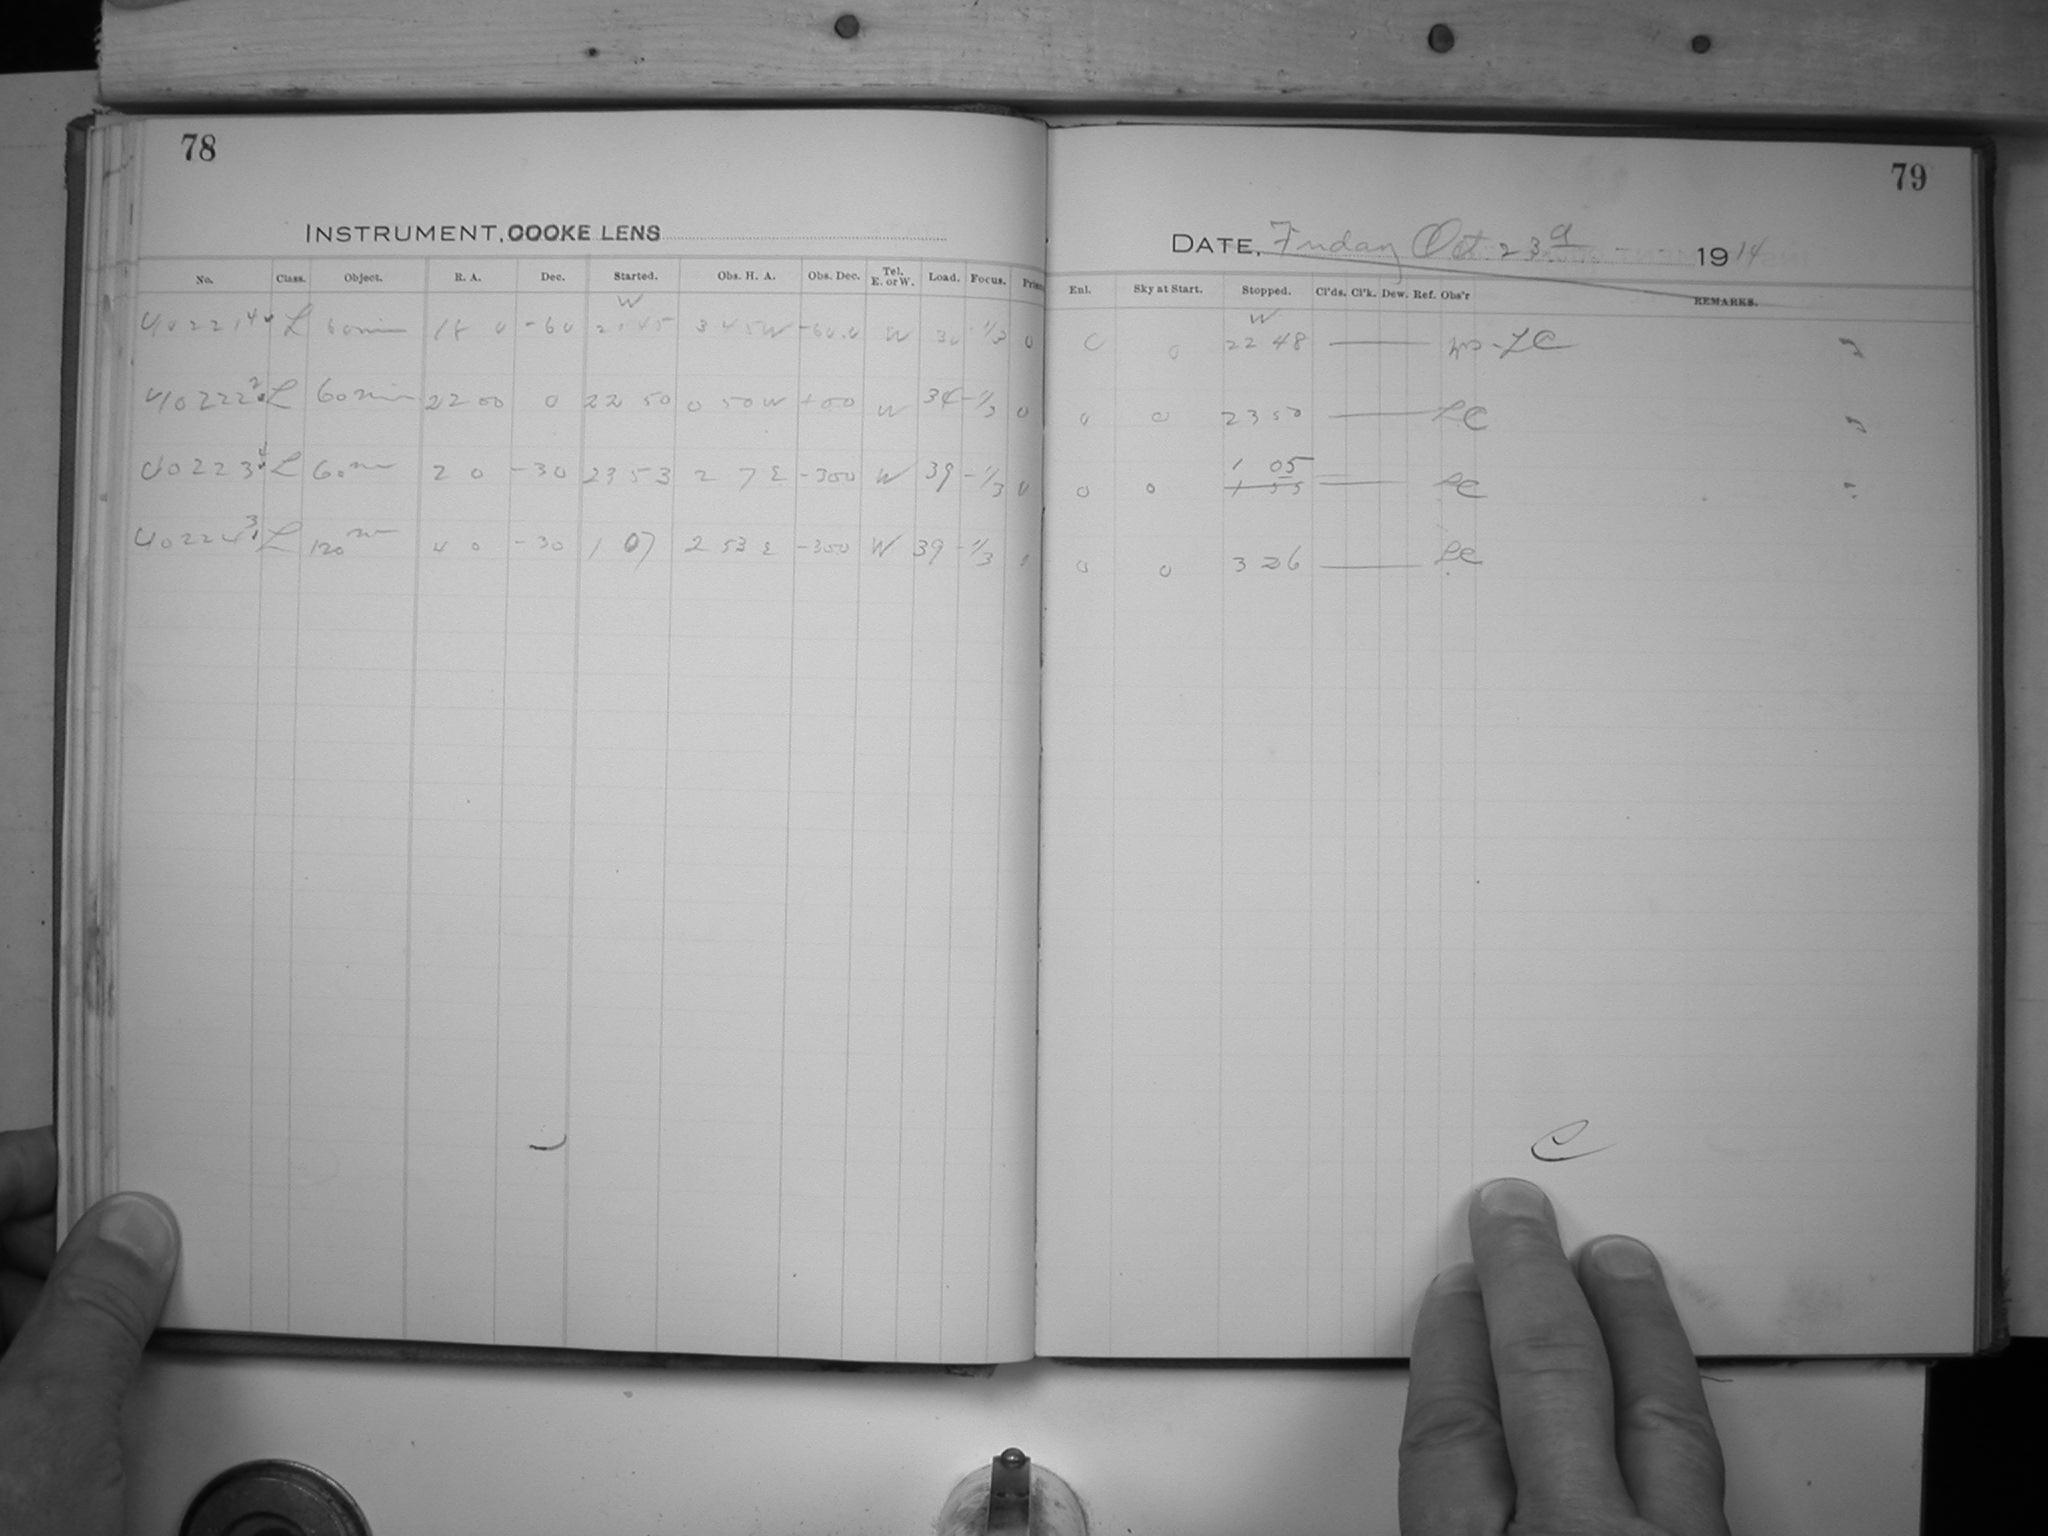 78
INSTRUMENT, COOKE LENS
No. Class. Object. R. A. Dec. Started. Obs. H. A. Obs. Dec. Tel. E. or W. Load. Focus.
W
40221 4 L 60 min 18 0 -60 21 45 3 45 W -60.0 W 30 -1/3 0
40222 2 L 60 min 22 00 0 22 50 0 50 W +00 W 34 -1/3 0
40223 4 L 60 m 2 0 -30 23 53 2 7 E -300 W 39 -1/3 0
40224 3 L 120 m 4 0 -30 1 07 2 53 E -300 W 39 -1/3
79
DATE, Friday Oct 23d 1914
Enl. Sky at Start. Stopped. Cl'ds. Cl'k. Dew. Ref. Obs'r REMARKS.
W
0 0 22 48 LC
0 0 23 50 LC
1 05
0 0 1 55 LC
0 0 3 26 LC
C